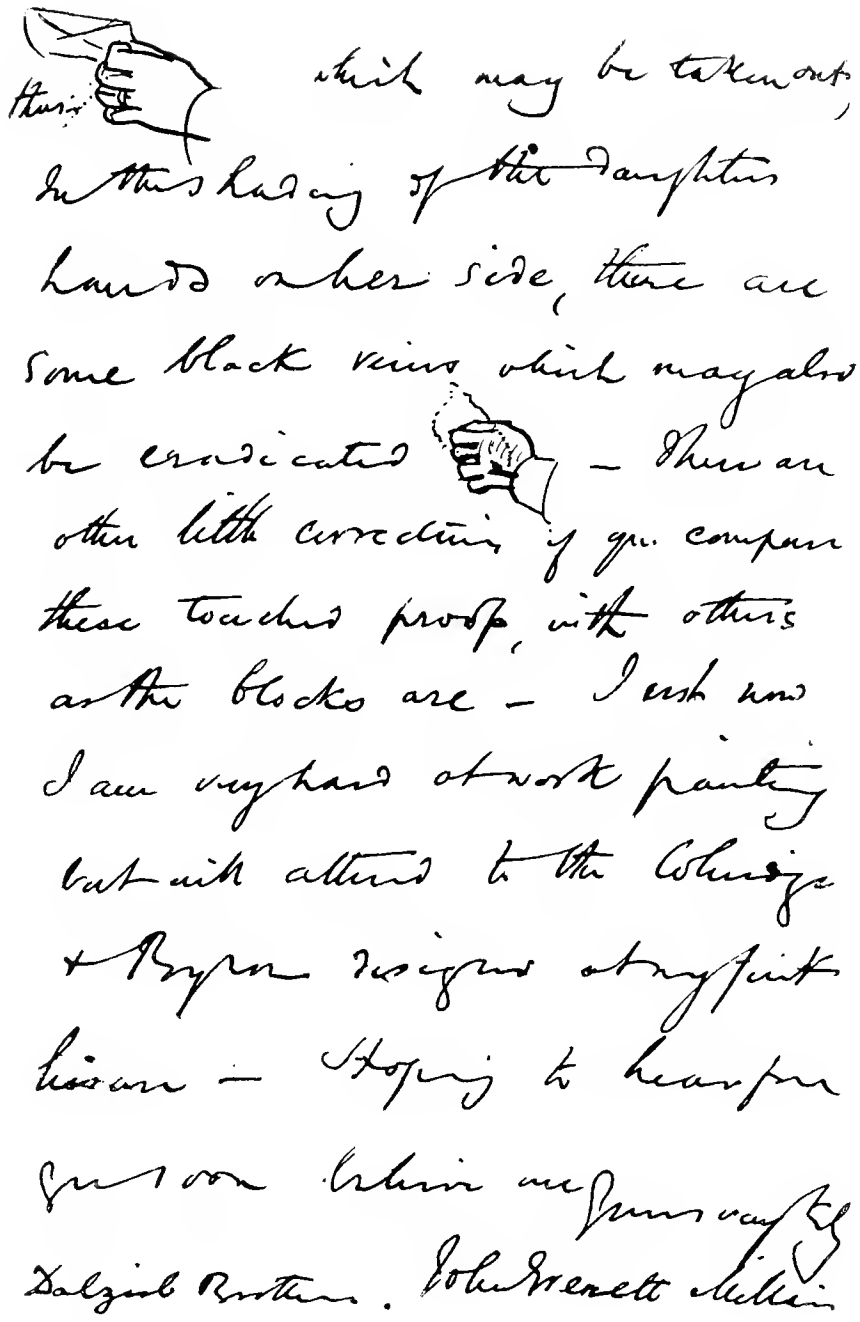 thus: which may be taken out,
In the shading of the daughters
hands on her side, there are
some black veins which may also
be eradicated — There are
other little corrections if you compare
these touched proofs, with others
as the blocks are — Just now
I am very hard at work painting
but will attend to the Coleridge
& Byron designs at my first
leisure — Hoping to hear from
you soon believe me yours very truly
Dalziel Brothers. John Everett Millais